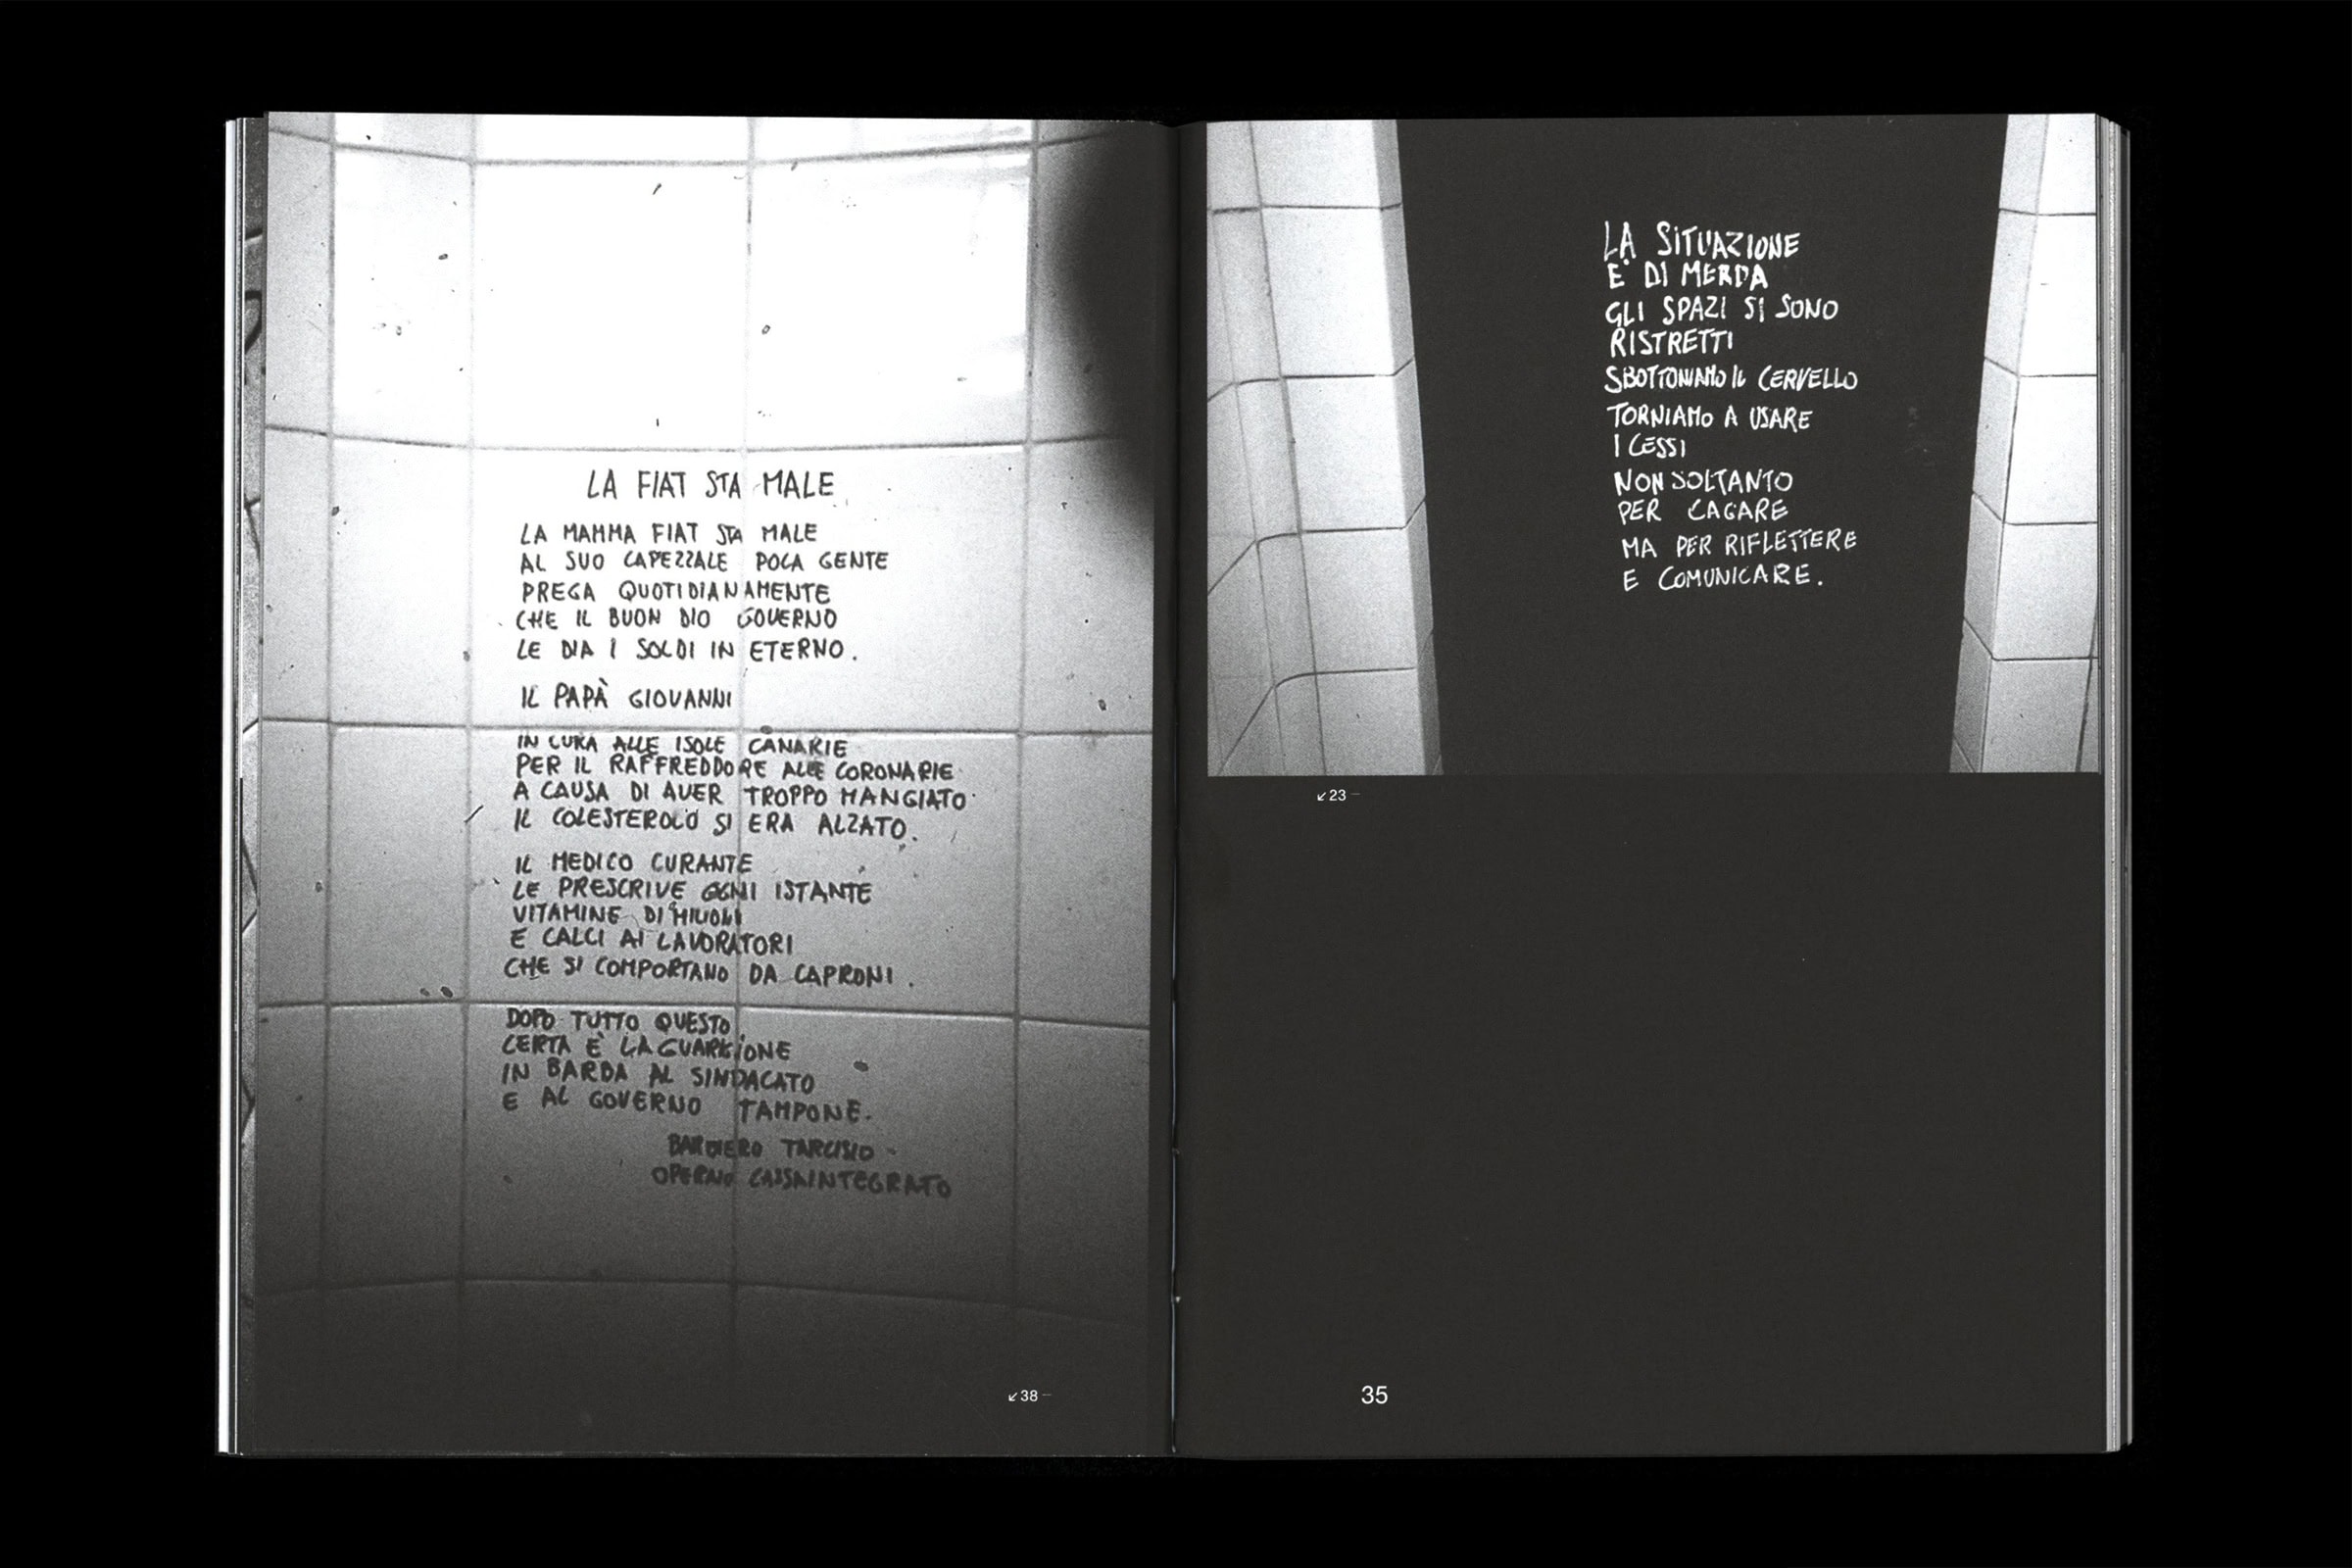 LA FIAT STA MALE
LA MAMMA FIAT STA MALE
AL SUO CAPEZZALE POCA GENTE
PREGA QUOTIDIANAMENTE
CHE IL BUON DIO GOVERNO
LE DIA I SOLDI IN ETERNO.
IL PAPÀ GIOVANNI
IN CURA ALLE ISOLE CANARIE
PER IL RAFFREDDORE ALLE CORONARIE
A CAUSA DI AVER TROPPO MANGIATO
IL COLESTEROLO SI ERA ALZATO.
IL MEDICO CURANTE
LE PRESCRIVE OGNI ISTANTE
VITAMINE DI MILIONI
E CALCI AI LAVORATORI
CHE SI COMPORTANO DA CAPRONI.
DOPO TUTTO QUESTO
CERTA È LA GUARIGIONE
IN BARBA AL SINDACATO
E AL GOVERNO TAMPONE.
TARCISIO
OPERAIO CASSAINTEGRATO
↙38
LA SITUAZIONE
E' DI MERDA
GLI SPAZI SI SONO
RISTRETTI
SBOTTONIAMO IL CERVELLO
TORNIAMO A USARE
I CESSI
NON SOLTANTO
PER CAGARE
MA PER RIFLETTERE
E COMUNICARE.
↙23
35